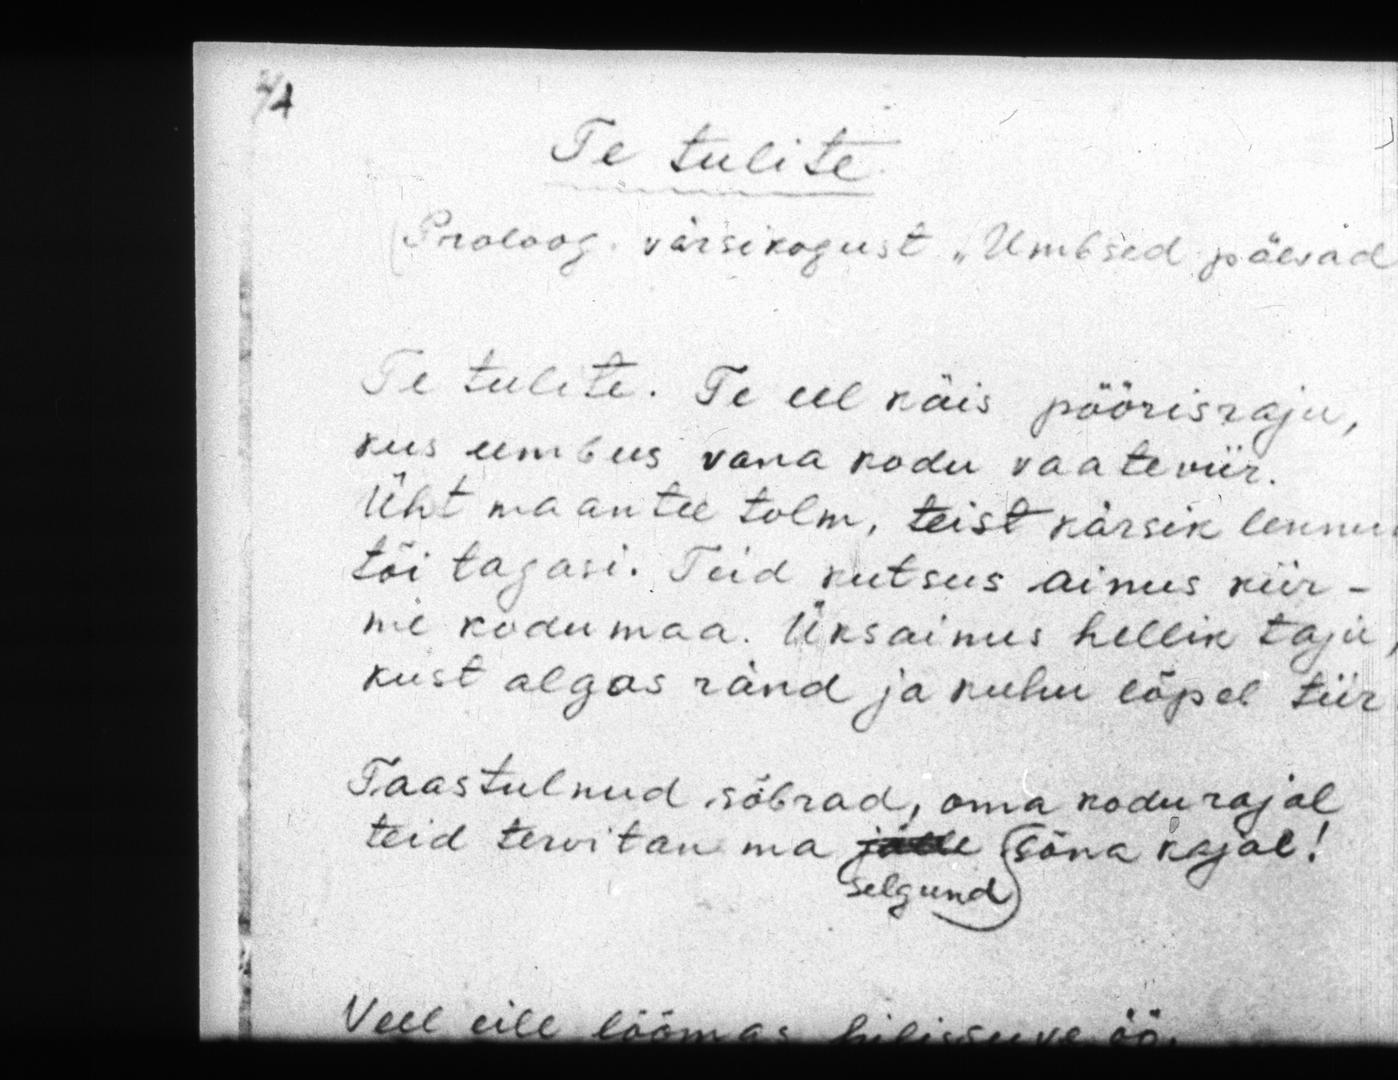 Te tulite
(Proloog värsikogust „Umbsed päevad
Te tulite. Te eel käis pöörisraju,
kus umbus vana kodu vaateviir.
Üht maantee tolm, teist kärsik lennu
tõi tagasi. Teid kutsus ainus kiir –
me kodumaa. Üksainus hellik taju,
kust algas ränd ja kuhu lõpel tiir
Taastulnud sõbrad, oma kodurajal
teid tervitan ma jälle sõna kajal!
selgund
Veel eile lõõmas hilissuve öö.